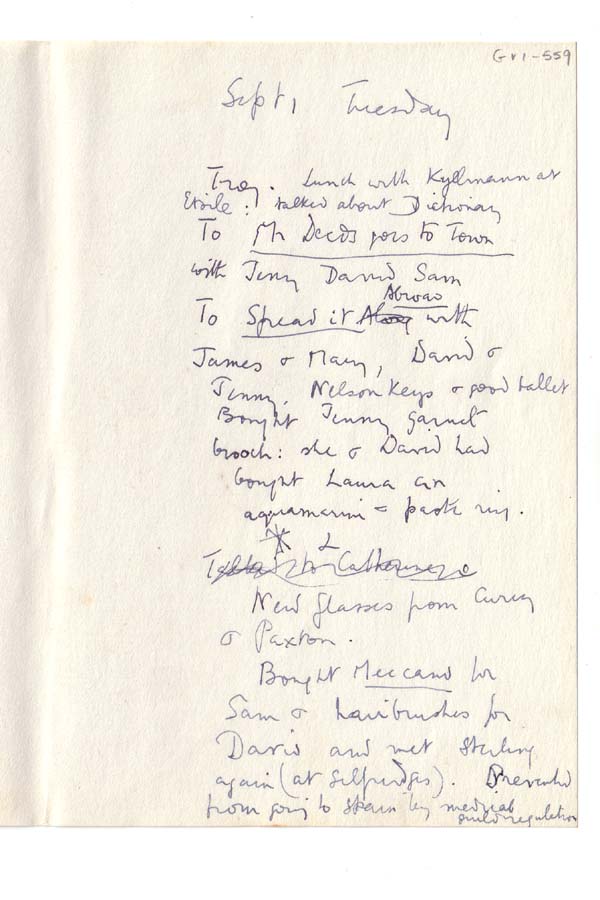 Gr1-559
Sept 1 Tuesday
Troy. Lunch with Kyllmann at
Etoile: talked about Dictionary
To Mr Deeds goes to Town
with Jenny David Sam
Abroad
To Spread it Along with
James & Mary, David &
Jenny. Nelson Keys & good ballet
Bought Jenny garnet
brooch: she & David had
bought Laura an
aquamarine paste ring.
Catherine
New glasses from Curry
& Paxton.
Bought Meccano for
Sam & hairbrushes for
David and met Sterling
again (at Selfridges). Prevented
from going to Spain by medical
guild regulation